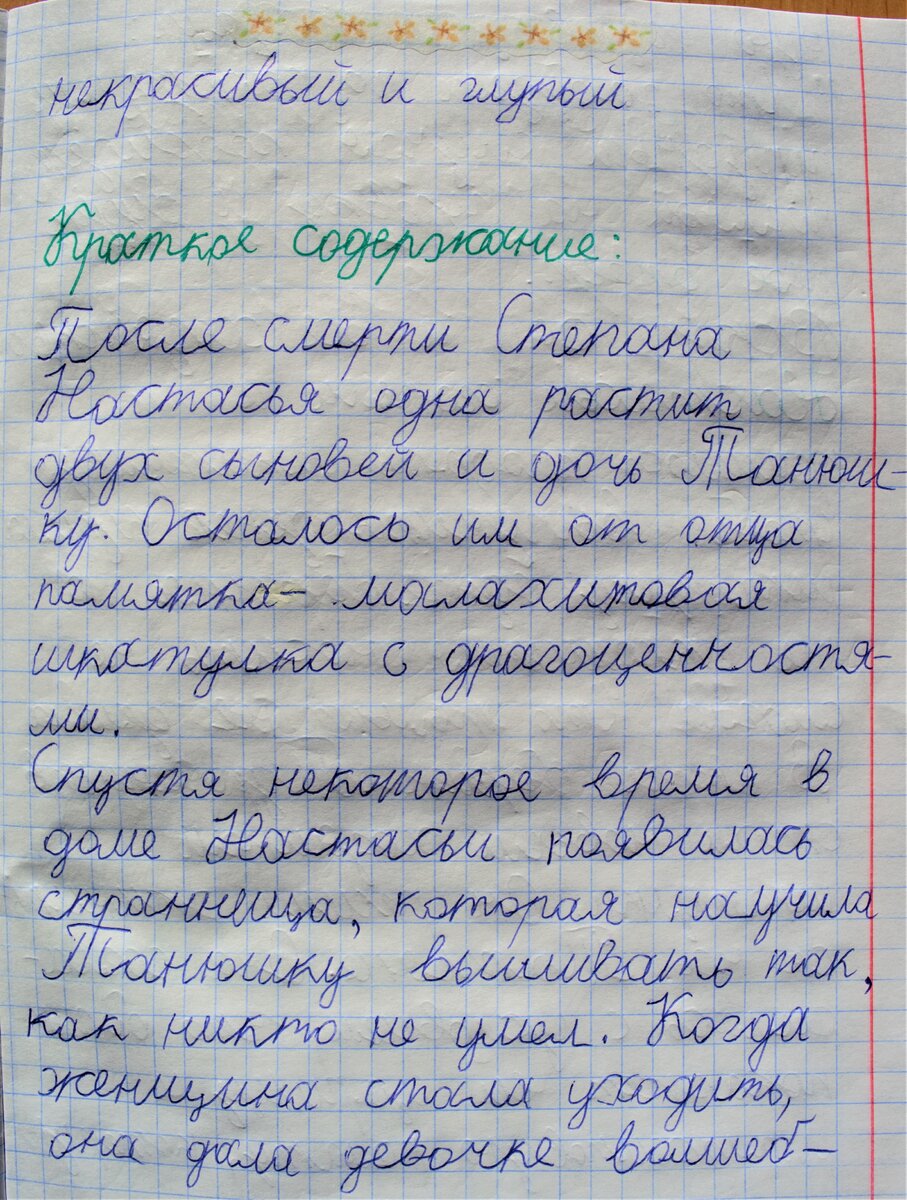 некрасивый и глупый
Краткое содержание:
После смерти Степана
Настасья одна растит
двух сыновей и дочь Танюш-
ку. Осталось им от отца
памятка- малахитовая
шкатулка с драгоценностя-
ми.
Спустя некоторое время в
доме Настасьи появилась
странница, которая научила
Танюшку вышивать так,
как никто не умел. Когда
женщина стала уходить,
она дала девочке волшеб-